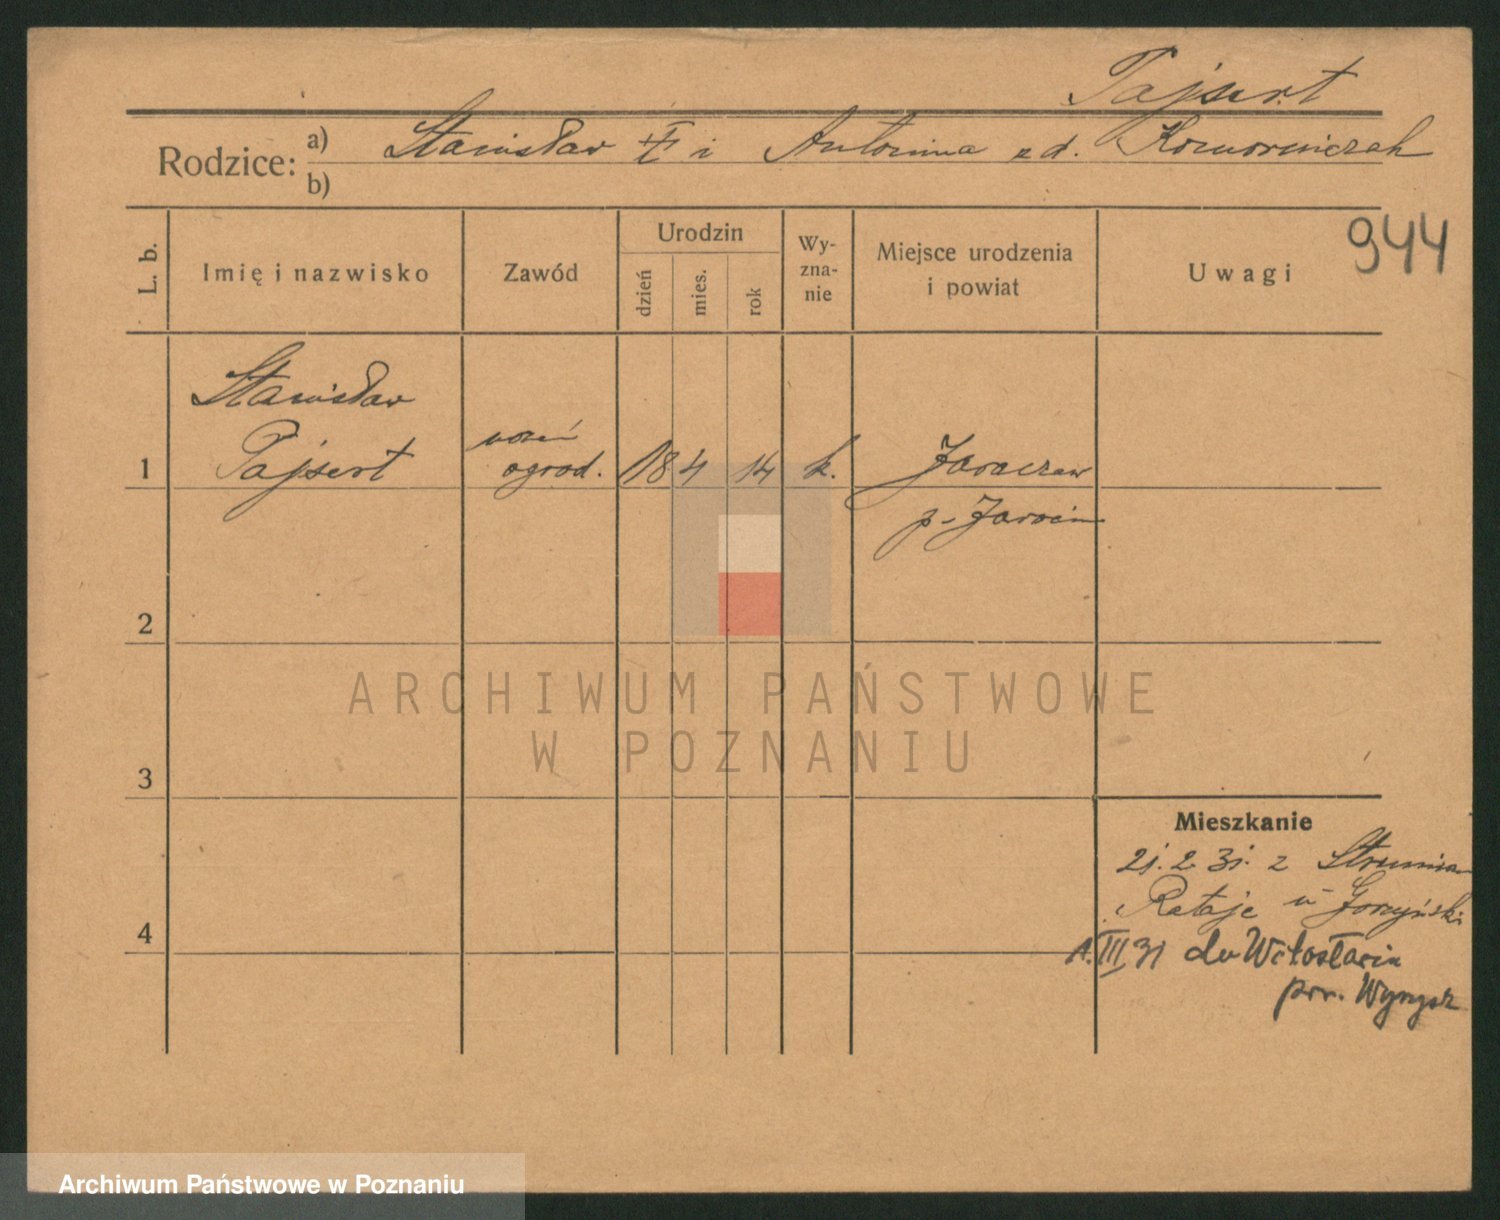 Pajsert
Rodzice: a) Stanisław i Antonina z d.
b)
944
L. b. Imię i nazwisko Zawód Urodzin dzień mies. rok Wyznanie Miejsce urodzenia i powiat Uwagi
Stanisław
uczeń
1 Pajsert ogrod. 18 4 14 k. Jaraczew
p. Jarocin
2
ARCHIWUM PAŃSTWOWE
W POZNANIU
3
Mieszkanie
21. 2. 31. z
Rataje u Gorzyński
4
1. III 31 do Witosławia
pow. Wyrzysk
Archiwum Państwowe w Poznaniu